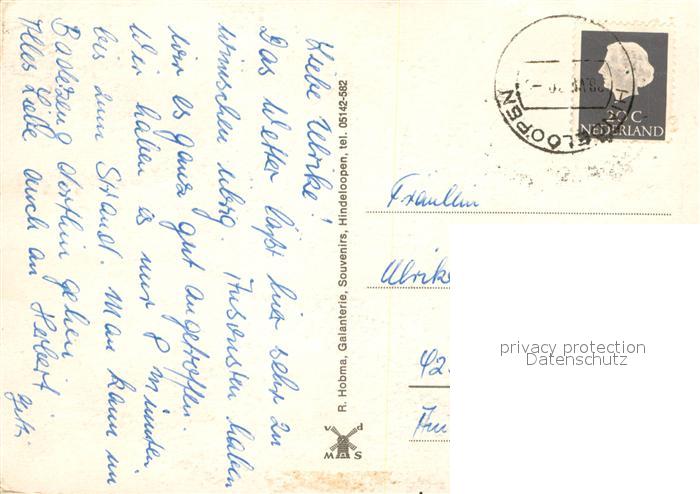 Liebe Ulrike!
Das Wetter läßt hier sehr zu
wünschen übrig. Ansonsten haben
wir es ganz gut angetroffen.
Wir haben es nur 8 Minuten
bis zum Strand. Man kann im
Badezeug dorthin gehen.
Alles Liebe auch an Herbert
R. Hobma, Galanterie, Souvenirs, Hindeloopen, tel. 05142-582
v d
M A S
HINDELOOPEN
20 C
NEDERLAND
Fräulein
Ulrike
42
privacy protection
Datenschutz